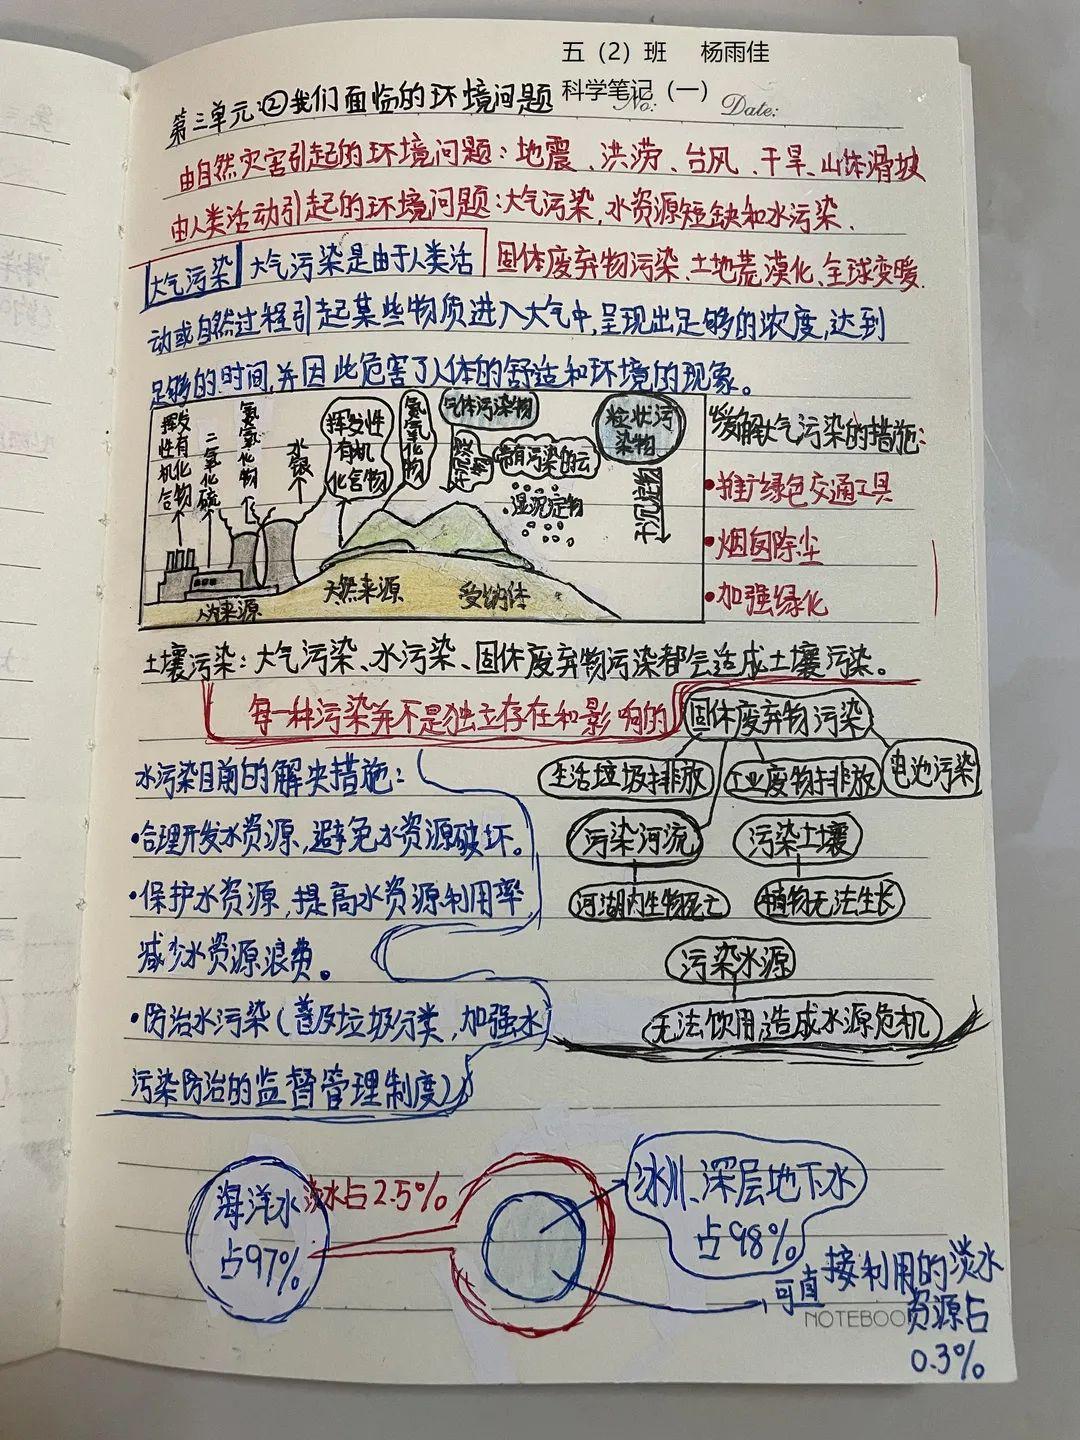 五（2）班 杨雨佳
科学笔记（一）
No:
Date:
第三单元②我们面临的环境问题
由自然灾害引起的环境问题：地震、洪涝、台风、干旱、山体滑坡
由人类活动引起的环境问题：大气污染，水资源短缺和水污染、
固体废弃物污染、土地荒漠化、全球变暖.
大气污染 大气污染是由于人类活
动或自然过程引起某些物质进入大气中，呈现出足够的浓度，达到
足够的时间，并因此危害了人体的舒适和环境的现象。
挥发性有机化合物
二氧化硫
氮氧化物
水银
挥发性有机化合物
氮氧化物
气体污染物
带有污染的云
湿沉淀物
粒状污染物
干沉淀物
人为来源
天然来源
受纳体
缓解大气污染的措施：
•推广绿色交通工具
•烟囱除尘
•加强绿化
土壤污染：大气污染、水污染、固体废弃物污染都会造成土壤污染。
每一种污染并不是独立存在和影响的
固体废弃物污染
生活垃圾排放
工业废物排放
电池污染
污染河流
污染土壤
河湖内生物死亡
植物无法生长
污染水源
无法饮用,造成水源危机
水污染目前的解决措施：
•合理开发水资源，避免水资源破坏。
•保护水资源，提高水资源利用率
减少水资源浪费。
•防治水污染（普及垃圾分类，加强水
污染防治的监督管理制度）
海洋水
占97%
淡水占2.5%
冰川、深层地下水
占98%
可直接利用的淡水
资源占
0.3%
NOTEBOO